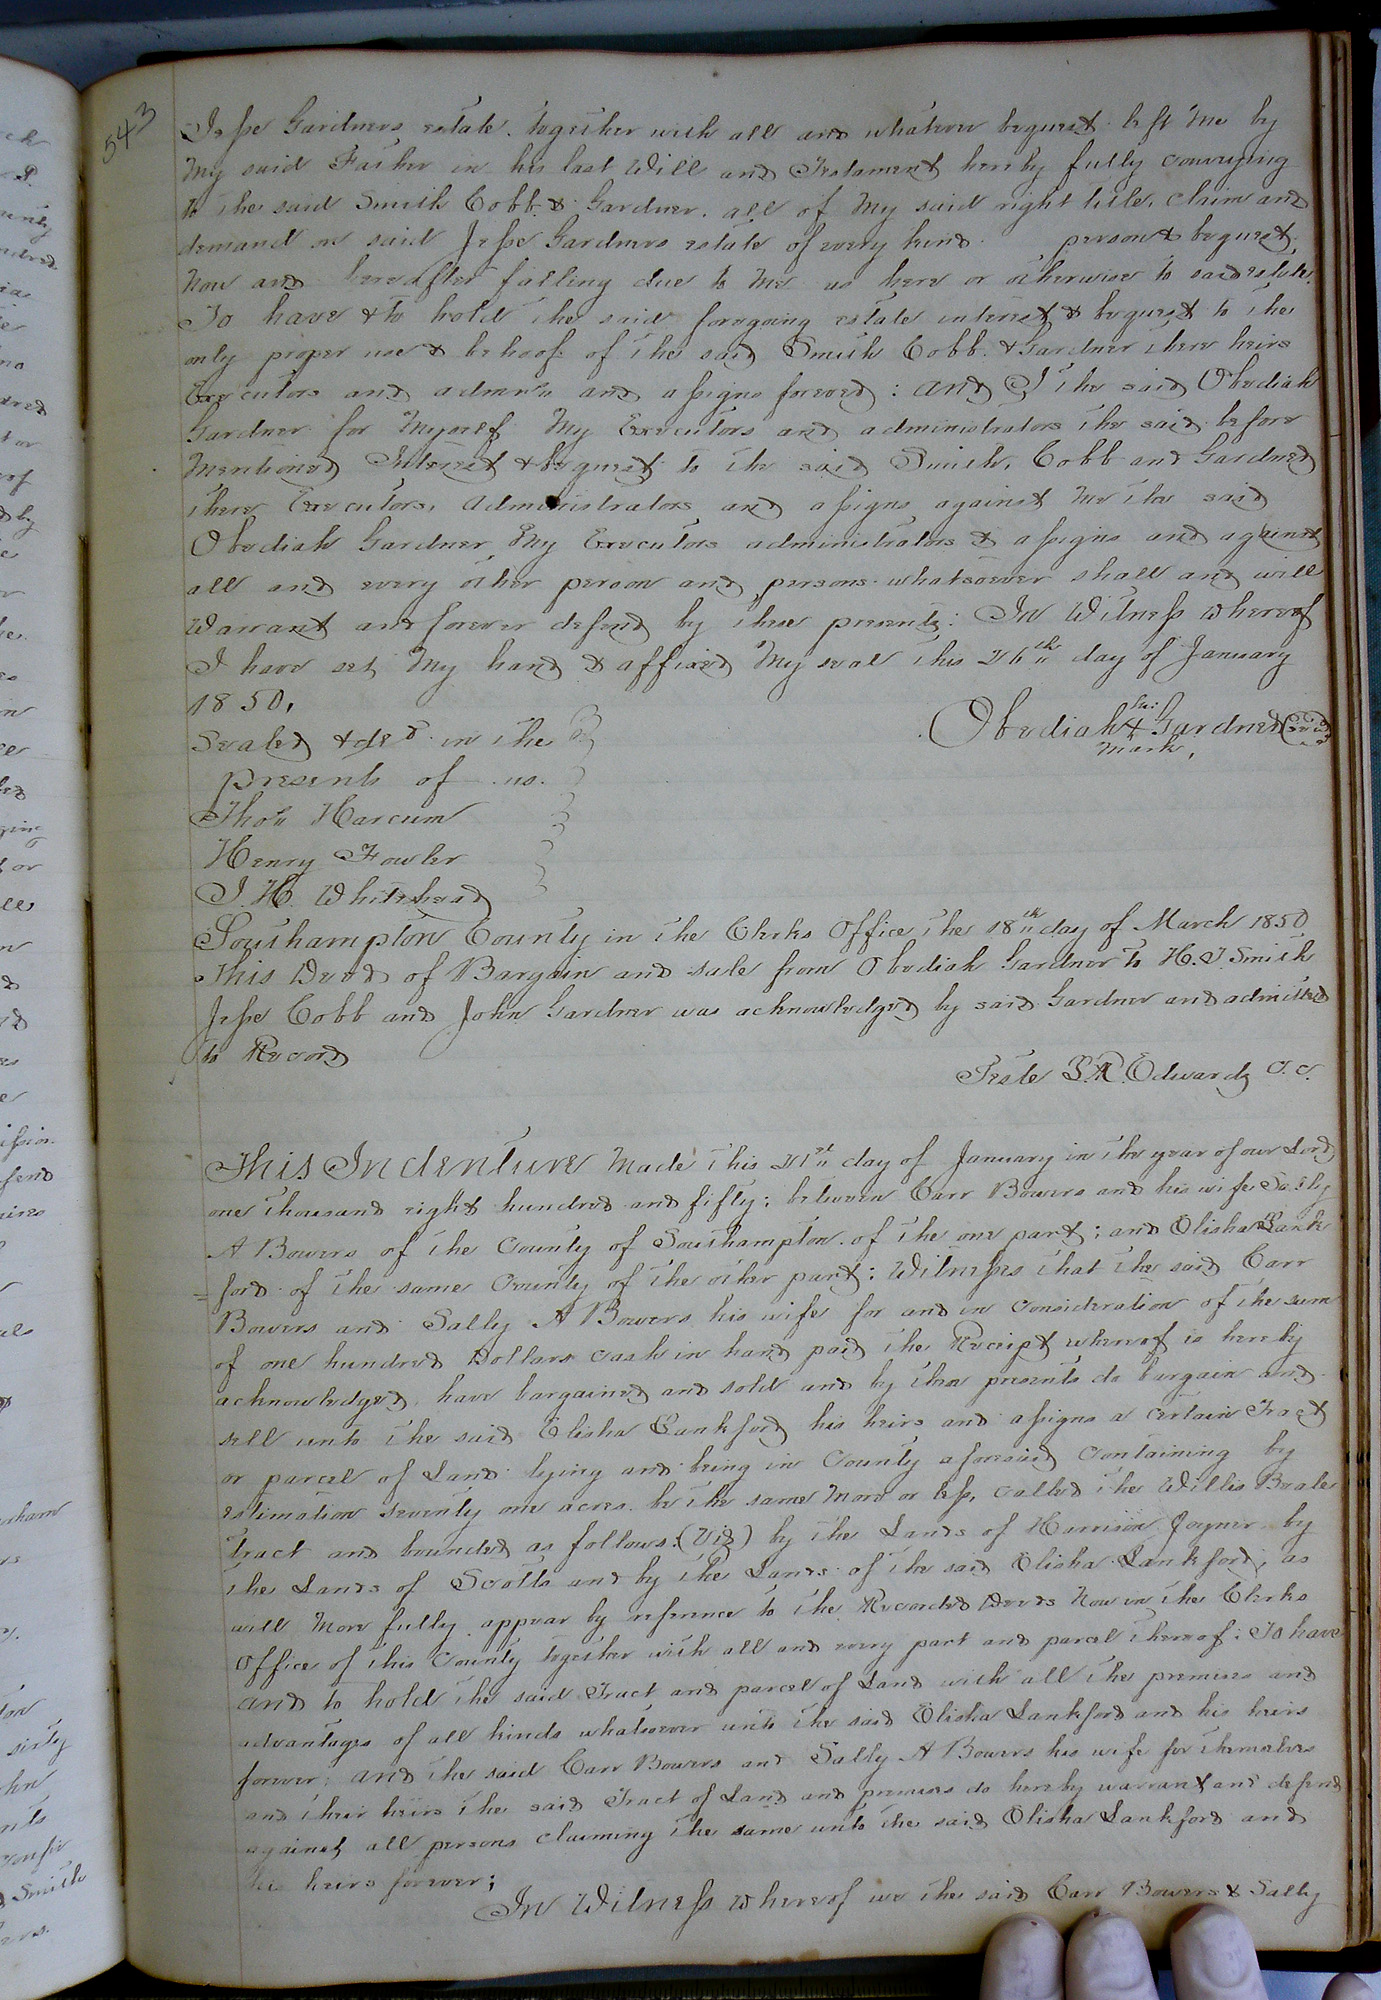 543
Jesse Gardners estate. together with all and whatever bequest left me by
My said Father in his last Will and Testament hereby fully conveying
to the said Smith Cobb & Gardner. all of My said right title, claim and
demand on said Jesse Gardners estate of every kind. person & bequest,
Now and hereafter falling due to Me as here or otherwise to said estate.
To have & to hold the said foregoing estate interest & bequest to the
only proper use & behoof of the said Smith Cobb. & Gardner there heirs
Executors and admrs and assigns forever: and I the said Obediah
Gardner for Myself My Executors and administrators the said before
Mentioned Interest & bequest to the said Smith, Cobb and Gardner
there Executors, Administrators and assigns against Me the said
Obediah Gardner, My Executors administrators & assigns and against
all and every other person and persons whatsoever shall and will
Warrant and forever defend by these presents: In Witness whereof
I have set My hand & affixed My seal this 26th day of January
1850.
Sealed & deld in the
presents of us.
his
Obediah X Gardner
mark,
Thos Harcum
Henry Fowler
J. H. Whitehead
Southampton County in the Clerks Office the 18th day of March 1850
This Deed of Bargain and sale from Obediah Gardner to H. J. Smith
Jesse Cobb and John Gardner was acknowledged by said Gardner and admitted
to Record
Teste L. R. Edwards C. C.
This Indenture Made this 21st day of January in the year of our Lord
one thousand eight hundred and fifty; between Carr Bowers and his wife Sally
A Bowers of the County of Southampton. of the one part; and Elisha Lank
=ford of the same County of the other part; Witnesses that the said Carr
Bowers and Sally A Bowers his wife for and in consideration of the sum
of one hundred Dollars cash in hand paid the Receipt whereof is hereby
acknowledged, have bargained and sold and by these presents do bargain and
sell unto the said Elisha Lankford his heirs and assigns a certain Tract
or parcel of Land lying and being in County aforesaid containing by
estimation seventy one acres. be the same More or less, called the Willis Beale
Tract and bounded as follows: (Viz) by the Lands of Harrison Joyner by
the Lands of Scotts and by the Lands of the said Elisha Lankford; as
will More fully appear by reference to the Recorded Deeds Now in the Clerks
office of this County together with all and every part and parcel thereof: To have
and to hold the said Tract and parcel of Land with all the premises and
advantages of all kinds whatsoever unto the said Elisha Lankford and his heirs
forever; and the said Carr Bowers and Sally A Bowers his wife for themselves
and their heirs the said Tract of Land and premises do hereby warrant and defend
against all persons claiming the same unto the said Elisha Lankford and
his heirs forever;
In Witness whereof we the said Carr Bowers & Sally